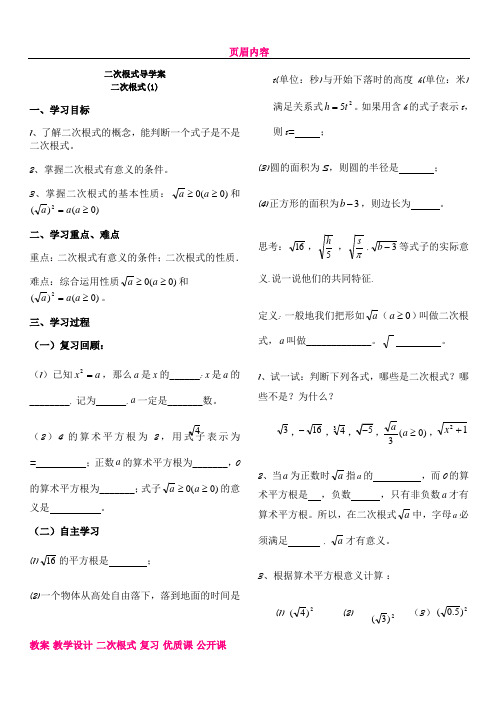 页眉内容
二次根式导学案
二次根式(1)
一、学习目标
1、了解二次根式的概念，能判断一个式子是不是
二次根式。
2、掌握二次根式有意义的条件。
3、掌握二次根式的基本性质：√a ≥ 0(a ≥ 0) 和
(√a)² = a(a ≥ 0)
二、学习重点、难点
重点：二次根式有意义的条件；二次根式的性质．
难点：综合运用性质√a ≥ 0(a ≥ 0)和
(√a)² = a(a ≥ 0)。
三、学习过程
（一）复习回顾：
（1）已知x² = a，那么a是x的______；x是a的
________, 记为______, a一定是_______数。
（2）4的算术平方根为2，用式子表示为
√4
=__________；正数a的算术平方根为_______，0
的算术平方根为_______；式子√a ≥ 0(a ≥ 0)的意
义是 。
（二）自主学习
(1)√16的平方根是 ；
(2)一个物体从高处自由落下，落到地面的时间是
t(单位：秒)与开始下落时的高度h(单位：米)
满足关系式h = 5t²。如果用含h的式子表示t，
则t= ；
(3)圆的面积为S，则圆的半径是 ；
(4)正方形的面积为b − 3，则边长为 。
思考：√16，√(h/5)，√(s/π)，√(b − 3)等式子的实际意
义.说一说他们的共同特征.
定义：一般地我们把形如√a（a ≥ 0）叫做二次根
式，a叫做_____________。√ 。
1、试一试：判断下列各式，哪些是二次根式？哪
些不是？为什么？
√3，−√16，∛4，√−5，√a/3 (a ≥ 0)，√(x² + 1)
2、当a为正数时√a指a的 ，而0的算
术平方根是 ，负数 ，只有非负数a才有
算术平方根。所以，在二次根式√a中，字母a必
须满足 , √a才有意义。
3、根据算术平方根意义计算 ：
(1) (√4)² (2) (√3)² （3）(√0.5)²
教案 教学设计 二次根式 复习 优质课 公开课